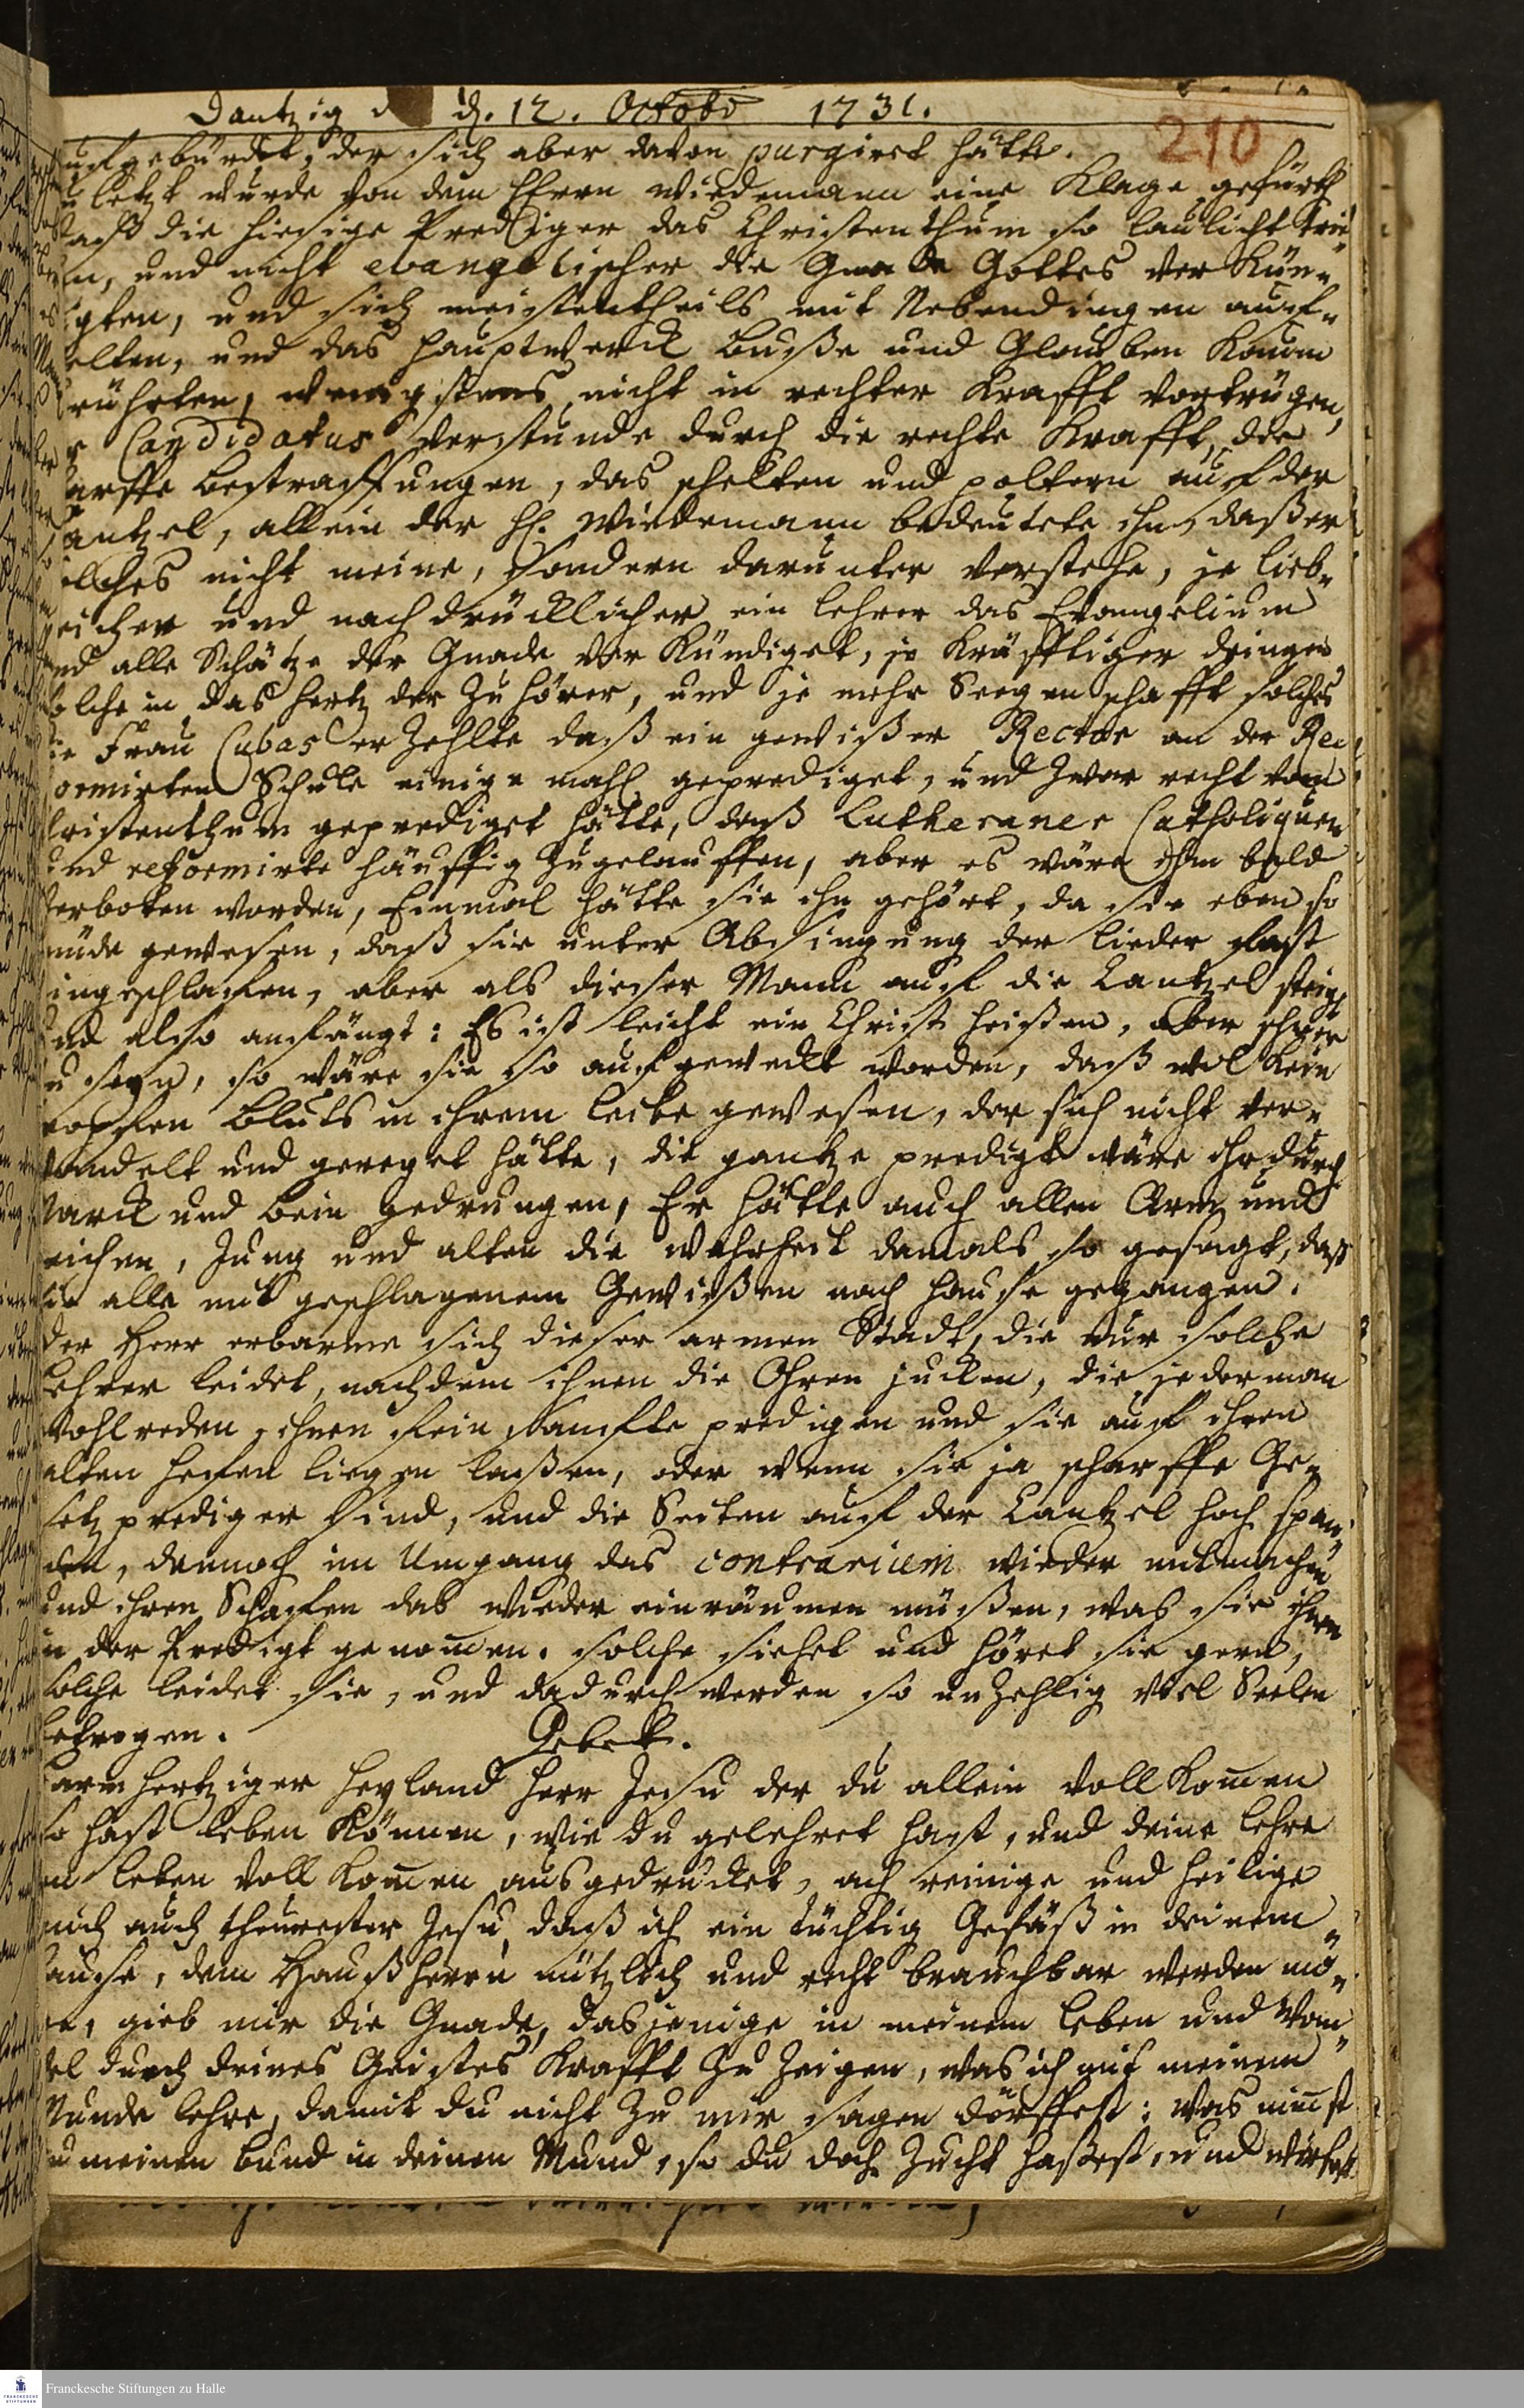 Dantzig d. 12. Octobr 1731.
210
ufgebürdet, der sich aber davon purgiret hätte.
u letzt wurde von dem Herrn Wiedemann eine Klage geführt
daß die hiesige Prediger das Christenthum so laulicht trie¬
en, und nicht evangelischer die Gnade Gottes verkün¬
igten, und sich meistentheils mit Nebendingen auf¬
elten, und das Hauptwerck Buße und Glauben kaum
rührten, wenigstens nicht in rechter Krafft vortrügen,
r Candidatus verstunde durch die rechte Krafft, die
arffe Bestraffungen, das schelten und poltern auf der
antzel, allein der H. Wiedemann bedeutete ihn, daß er
olches nicht meine, sondern darunter verstehe, je lieb¬
eicher und nachdrücklicher ein Lehrer das Evangelium
nd alle Schätze der Gnade verkündiget, je kräfftiger dringen
olche in das Hertz der Zuhörer, und je mehr Seegen schafft solches
ie Frau Cubas erzehlte daß ein gewißer Rector an der Re¬
ormirten Schule einige mahl geprediget, und zwar recht vom
hristenthum geprediget hätte, daß Lutheraner Catholiquen
und reformirte häuffig zugelauffen, aber es wäre ihm bald
verboten worden, Einmal hätte sie ihn gehört, da sie eben so
müde gewesen, daß sie unter Absingung der Lieder fast
ingeschlafen, aber als dieser Mann auf die Cantzel steigt
und also anfängt: Es ist leicht ein Christ heißen, aber schwer
u seyn, so wäre sie so aufgeweckt worden, daß wol kein
ropfen Bluts in ihrem Leibe gewesen, der sich nicht ver¬
wandelt und gereget hätte, die gantze predigt wäre ihr durch
Marck und Bein gedrungen, Er hätte auch allen Arm und
eichen, Jung und alten die Wahrheit damals so gesagt, daß
sie alle mit geschlagenem Gewißen nach Hause gegangen.
der Herr erbarme sich dieser armen Stadt, die nur solche
Lehrer leidet, nachdem ihnen die Ohren jucken, die jederman
wohl reden, ihnen fein sanffte predigen und sie auf ihren
alten Hefen liegen laßen, oder wenn sie ja scharffe Ge¬
setz prediger sind, und die Seiten auf der Cantzel hoch span¬
nen, dennoch im Umgang das contrarium wieder mitmachen
und ihren Schaafen das wieder einräumen müßen, was sie ihnen
in der Predigt genom̄en. solche siehet und höret sie gern,
solche leidet sie, und dadurch werden so unzehlig viel Seelen
betrogen. Gebet.
armhertziger Heyland Herr Jesu der du allein vollkom̄en
so hast leben können, wie du gelehret hast, und deine Lehre
m Leben vollkom̄en ausgedrucket, ach reinige und heilige
mich auch theurester Jesu, daß ich ein tüchtig Gefäß in deinem
ause, dem Haußherrn nützlich und recht brauchbar werden mö¬
ge, gieb mir die Gnade, dasjenige in meinem Leben und Wan¬
del durch deines Geistes Krafft zu zeigen, was ich mit meinem
Munde lehre, damit du nicht zu mir sagen dörffest: was nim̄st
u meinen Bund in deinen Mund, so du doch Zucht haßest, und wirfest
Franckesche Stiftungen zu Halle